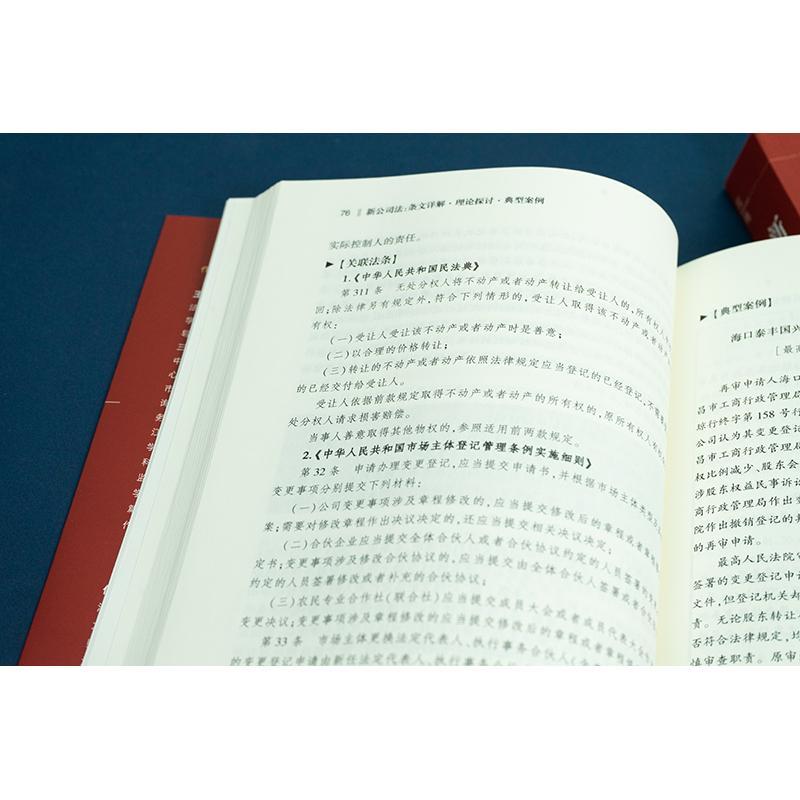 76 ‖ 新公司法:条文详解·理论探讨·典型案例
实际控制人的责任。
▶【关联法条】
1.《中华人民共和国民法典》
第311条 无处分权人将不动产或者动产转让给受让人的,所有权人
回;除法律另有规定外,符合下列情形的,受让人取得该不动产或者动产
有权:
(一)受让人受让该不动产或者动产时是善意;
(二)以合理的价格转让;
(三)转让的不动产或者动产依照法律规定应当登记的已经登记,不需要
的已经交付给受让人。
受让人依据前款规定取得不动产或者动产的所有权的,原所有权人有权
处分权人请求损害赔偿。
当事人善意取得其他物权的,参照适用前两款规定。
2.《中华人民共和国市场主体登记管理条例实施细则》
第32条 申请办理变更登记,应当提交申请书,并根据市场主体类型及
变更事项分别提交下列材料:
(一)公司变更事项涉及章程修改的,应当提交修改后的章程或者章程
案;需要对修改章程作出决议决定的,还应当提交相关决议决定;
(二)合伙企业应当提交全体合伙人或者合伙协议约定的人员签署的
定书;变更事项涉及修改合伙协议的,应当提交由全体合伙人签署或者合伙
约定的人员签署修改或者补充的合伙协议;
(三)农民专业合作社(联合社)应当提交成员大会或者成员代表大会
变更决议;变更事项涉及章程修改的应当提交修改后的章程或者章程
第33条 市场主体更换法定代表人、执行事务合伙人(含
的变更登记申请由新任法定代表人、执行事务合伙人
▶【典型案例】
海口泰丰国兴
[最高
再审申请人海口
昌市工商行政管理局
琼行终字第158号行
公司认为其变更登记
昌市工商行政管理局
权比例减少、股东会
涉股东权益民事诉讼
商行政管理局作出变
院作出撤销登记的具
的再审申请。
最高人民法院审
签署的变更登记申请
文件,但登记机关却
责。无论股东转让
否符合法律规定,均
慎审查职责。原审